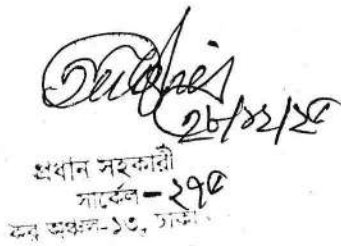 ২৮/১২/২৫
প্রধান সহকারী
সার্কেল-২৭৫
কর অঞ্চল-১৩, ঢাকা